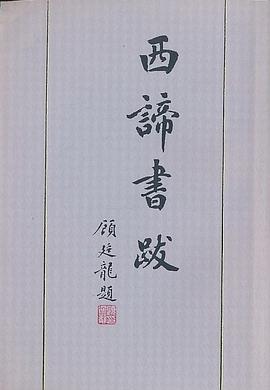 西諦書跋
顧廷龍題